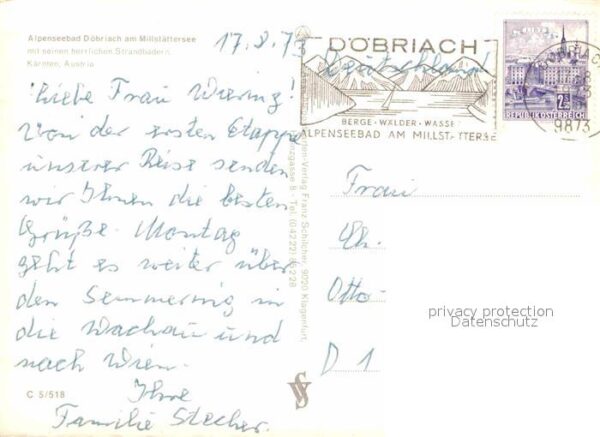 Alpenseebad Döbriach am Millstättersee
mit seinen herrlichen Strandbädern.
Kärnten, Austria
17.8.73
Liebe Frau Wiering!
Von der ersten Etappe
unserer Reise senden
wir Ihnen die besten
Grüße. Montag
geht es weiter über
den Semmering in
die Wachau und
nach Wien.
Ihre
Familie Stecher.
C 5/518
Karten-Verlag Franz Schilcher, 9020 Klagenfurt,
DÖBRIACH
Deutschland
BERGE · WÄLDER · WASSER
ALPENSEEBAD AM MILLSTÄTTERSEE
REPUBLIK ÖSTERREICH
9873
Frau
Ch.
Otto-
D 1
privacy protection
Datenschutz